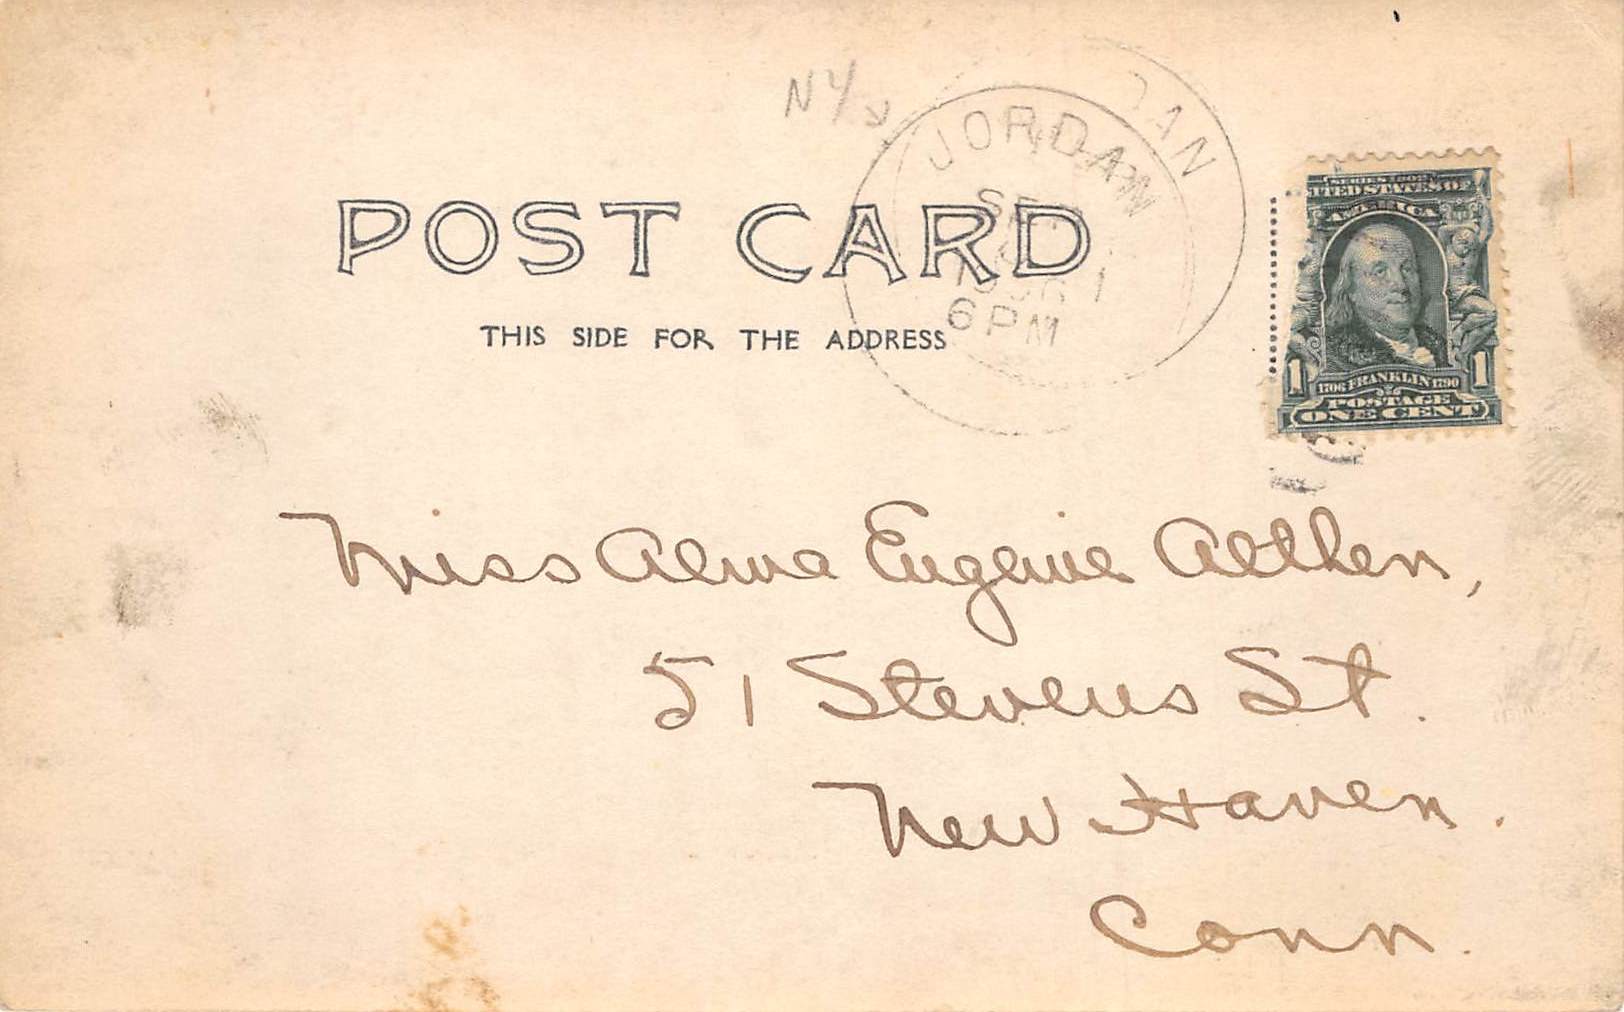 NY
JORDAN
6 PM
POST CARD
THIS SIDE FOR THE ADDRESS
SERIES 1902
UNITED STATES OF
AMERICA
1 1706 FRANKLIN 1790 1
POSTAGE
ONE CENT
Miss Alma Eugenie Althen,
51 Stevens St.
New Haven.
Conn.